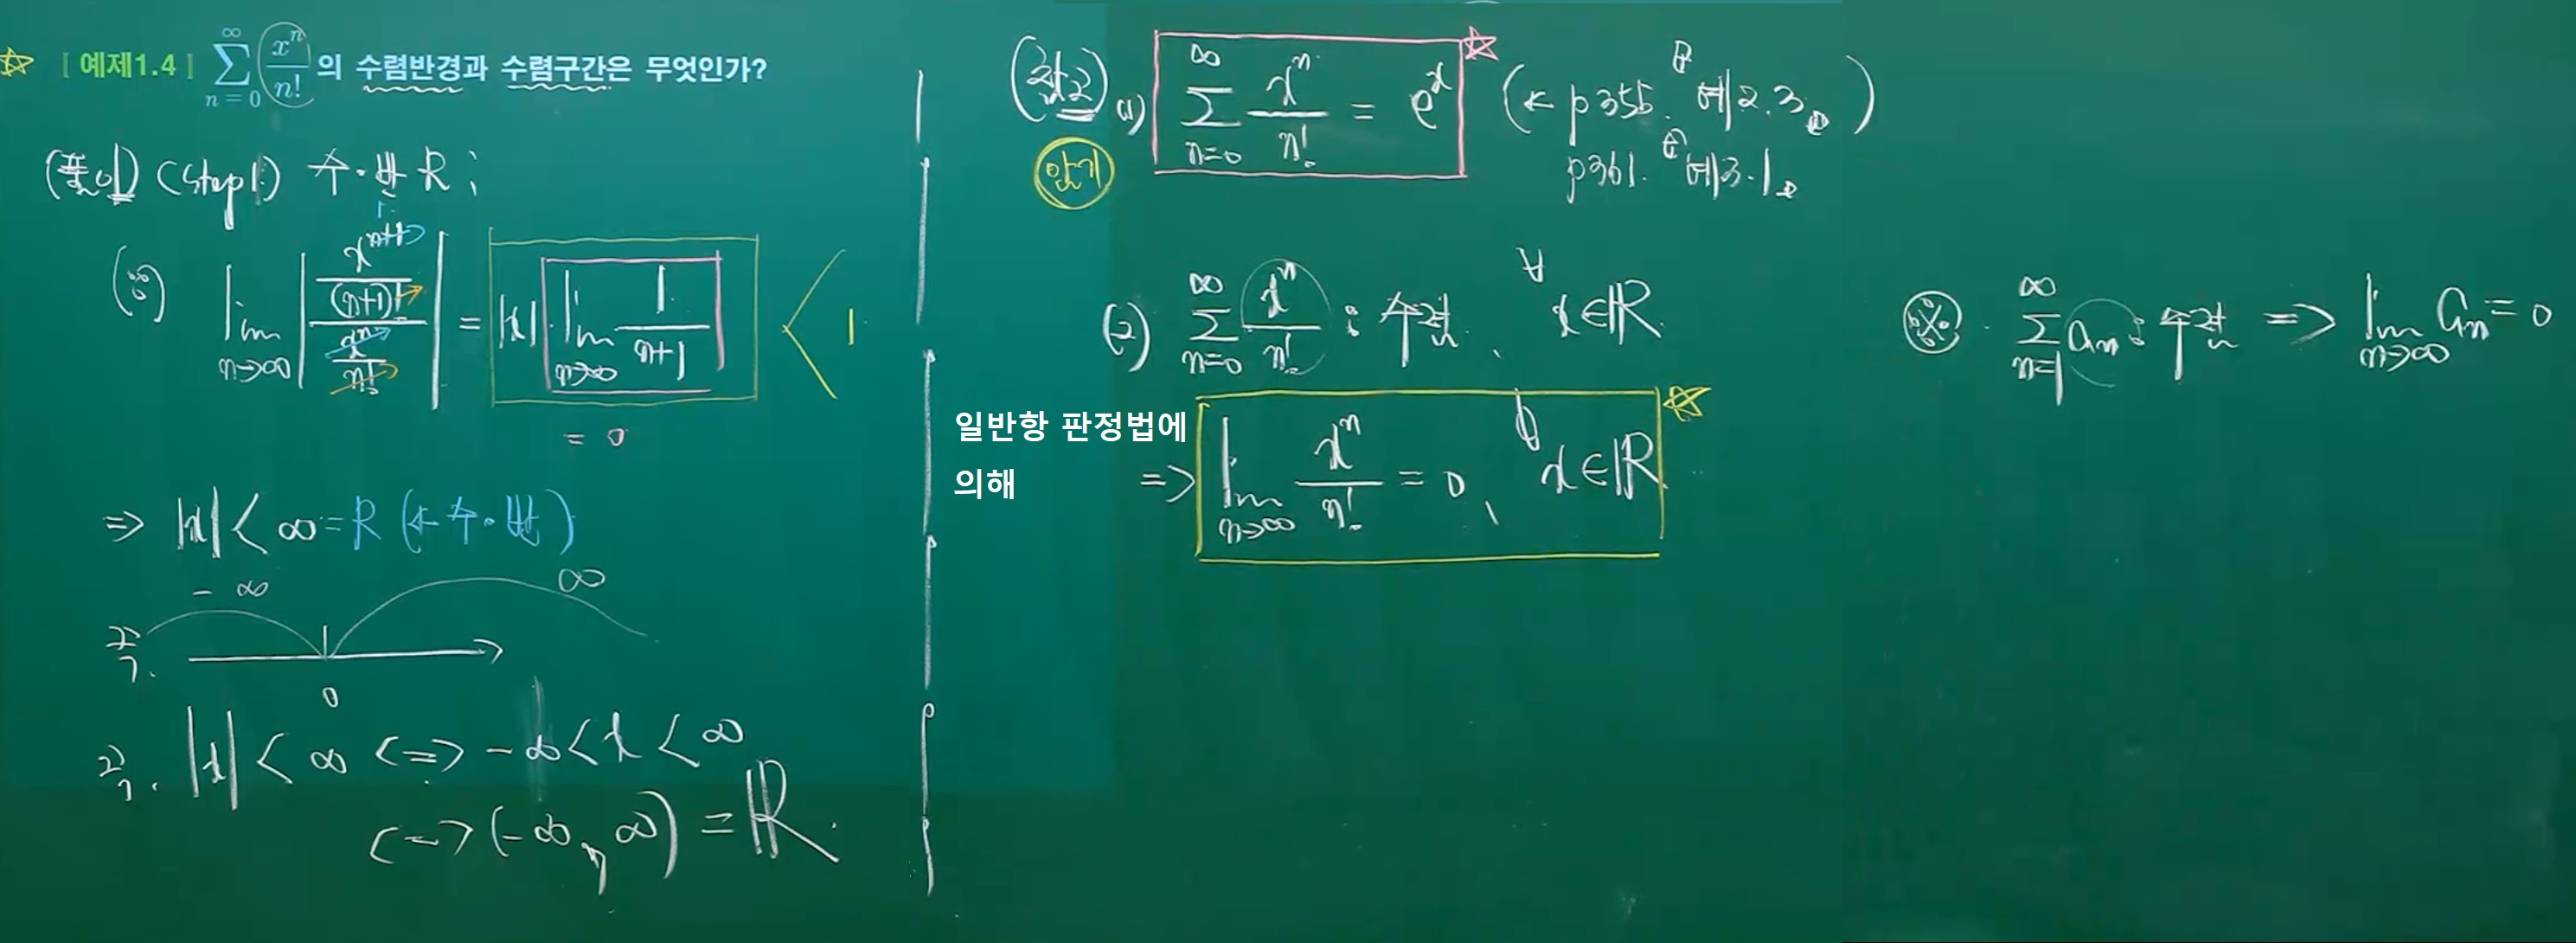 ☆ [ 예제1.4 ] $\sum_{n=0}^{\infty} \frac{x^n}{n!}$ 의 수렴반경과 수렴구간은 무엇인가?
(풀이) (step1) 수·반 R ;
(※) $\lim_{n\to\infty} \left| \frac{\frac{x^{n+1}}{(n+1)!}}{\frac{x^n}{n!}} \right| = |x| \cdot \lim_{n\to\infty} \frac{1}{n+1} < 1$
= 0
=> |x| < ∞ = R (← 수·반)
- ∞ ∞
0
|x| < ∞ <=> -∞ < x < ∞
<=> (-∞, ∞) = ℝ.
(참고) (1) $\sum_{n=0}^{\infty} \frac{x^n}{n!} = e^x$ ☆ (← p356. 예2.3.
암기
p361. 예3.1. )
(2) $\sum_{n=0}^{\infty} \frac{x^n}{n!}$ : 수렴, ∀x∈ℝ.
일반항 판정법에
의해
=> $\lim_{n\to\infty} \frac{x^n}{n!} = 0$, ∀x∈ℝ ☆
※. $\sum_{n=1}^{\infty} a_n$ : 수렴 => $\lim_{n\to\infty} a_n = 0$